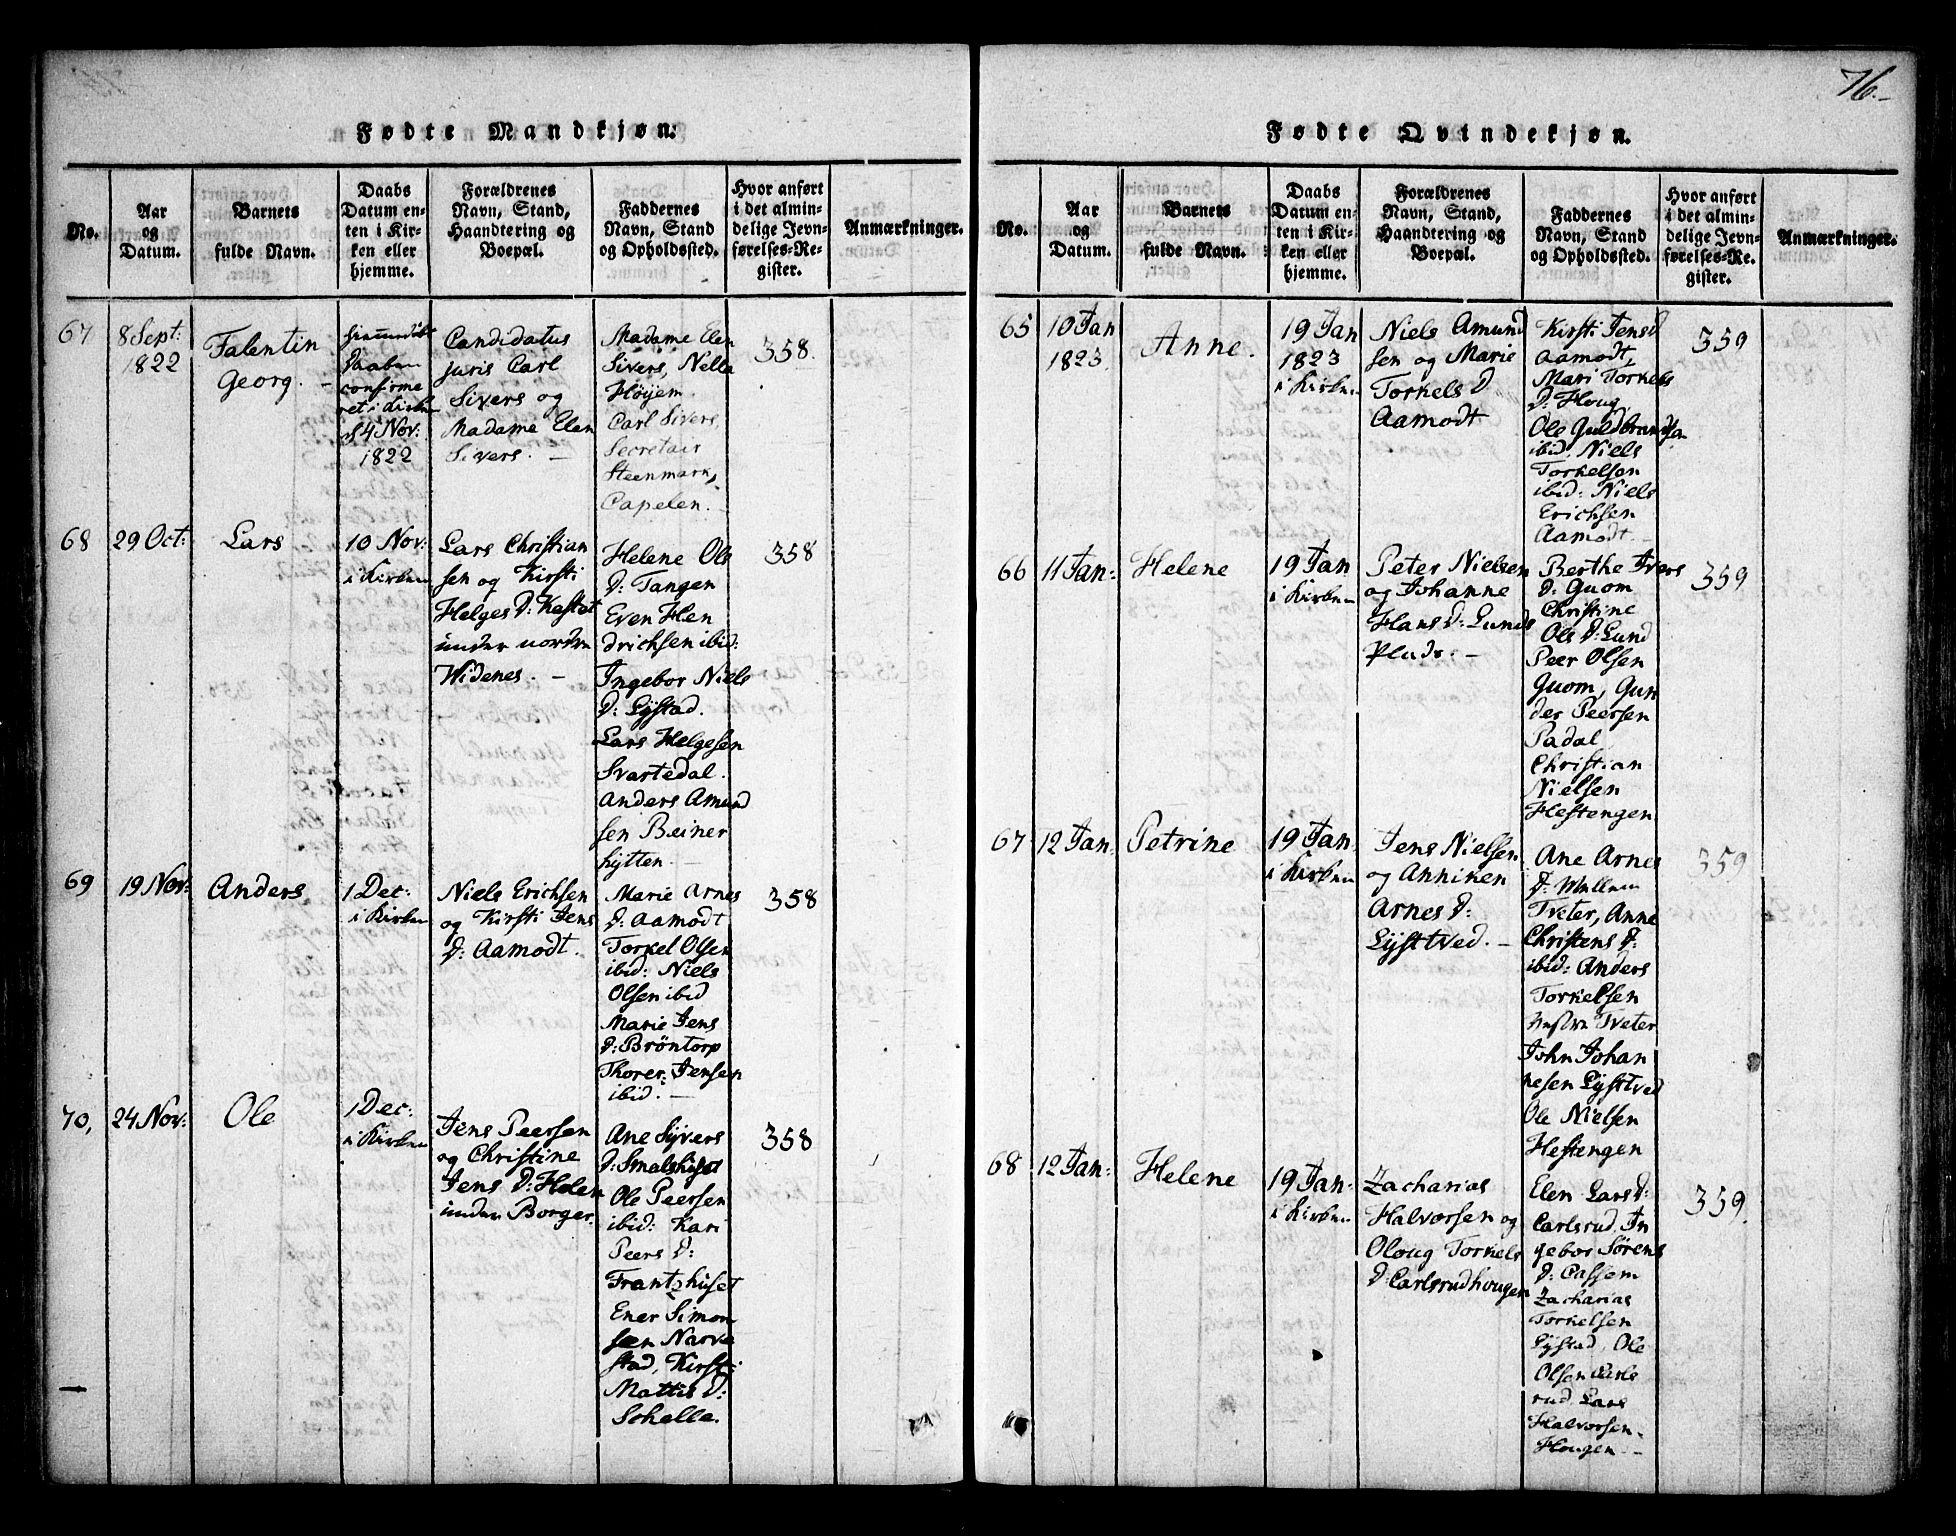 76.
Fødte Mandkjøn.
No.
Aar
og
Datum.
Barnets
fulde Navn.
Daabs
Datum en-
ten i Kir-
ken eller
hjemme.
Forældrenes
Navn, Stand,
Haandtering og
Boepæl.
Faddernes
Navn, Stand
og Opholdssted.
Hvor anført
i det almin-
delige Jevn-
førelses-Re-
gister.
Anmærkninger.
67
8 Sept:
1822
Falentin
Georg.
Daaben
confirme
ret i Kirken
d 4 Nov:
1822
Candidatus
juris Carl
Sivers og
Madame Elen
Sivers. –
Madame Elen
Sivers, Nella
Höyem
Carl Sivers,
Secretair
Steenmark,
Capelen.
358.
68
29 Oct:
Lars
10 Nov:
i Kirken
Lars Christian
sen og Kirsti
Helges D: Kastat
under nordre
Widenes. –
Helene Ols
D: Tangen
Even Hen
drichsen ibid:
Ingebor Niels
D: Lÿstad.
Lars Helgesen
Svartedal.
Anders Amund
sen Beiner
hÿtten. –
358
69
19 Nov:
Anders
1 Dec:
i Kirken
Niels Erichsen
og Kirsti Jens
D: Aamodt.
Marie Arnes
D: Aamodt
Torkel Olsen
ibid: Niels
Olsen ibid
Marie Jens
D: Bröntorp
Thorer Jensen
ibid. –
358
70,
24 Nov:
Ole
1 Dec:
i Kirken
Jens Peersen
og Christine
Jens D: Holen
under Borger.
Ane Sÿvers
D: Smalshuset
Ole Peersen
ibid: Kari
Peers D:
Frantzhuset
Ener Simon
sen Narve
stad, Kirsti
Mattis D:
Schelle.
358
Fødte Qvindekjøn.
No.
Aar
og
Datum.
Barnets
fulde Navn.
Daabs
Datum en-
ten i Kir-
ken eller
hjemme.
Forældrenes
Navn, Stand,
Haandtering og
Boepæl.
Faddernes
Navn, Stand
og Opholdssted.
Hvor anført
i det almin-
delige Jevn-
førelses-Re-
gister.
Anmærkninger.
65
10 Jan
1823.
Anne.
19 Jan
1823
i Kirken
Niels Amund
sen og Marie
Torkels D
Aamodt
Kirsti Jensd
Aamodt,
Mari Torkels
D: Houg
Ole Guldbrandsen
ibid, Niels
Torkelsen
ibid: Niels
Erichsen
Aamodt. –
359
66
11 Jan:
Helene
19 Jan
i Kirken
Peter Nielsen
og Johanne
Hans D: Lunds
Plads. –
Berthe Ivers
D: Guom
Christine
Ols D: Lund
Peer Olsen
Guom, Gun
der Peersen
Padal
Christian
Nielsen
Hestengen
359
67
12 Jan:
Petrine
19 Jan:
i Kirken
Jens Nielsen
og Anniken
Arnes D:
Lÿstved. –
Ane Arnes
D: Mellem
Tveter, Anne
Christens D:
ibid: Anders
Torkelsen
Tveter
John Johan
nesen Lÿstved
Ole Nielsen
Hestengen
359
68
12 Jan:
Helene
19 Jan:
i Kirken
Zacharias
Halvorsen og
Oloug Torkels
D: Carlsrudhougen
Elen Lars D:
Carlsrud. In
gebor Sörens
D: Cassem
Zacharias
Torkelsen
Lÿstad, Ole
Olsen Carls
rud, Lars
Halvorsen.
Hougen. –
359.